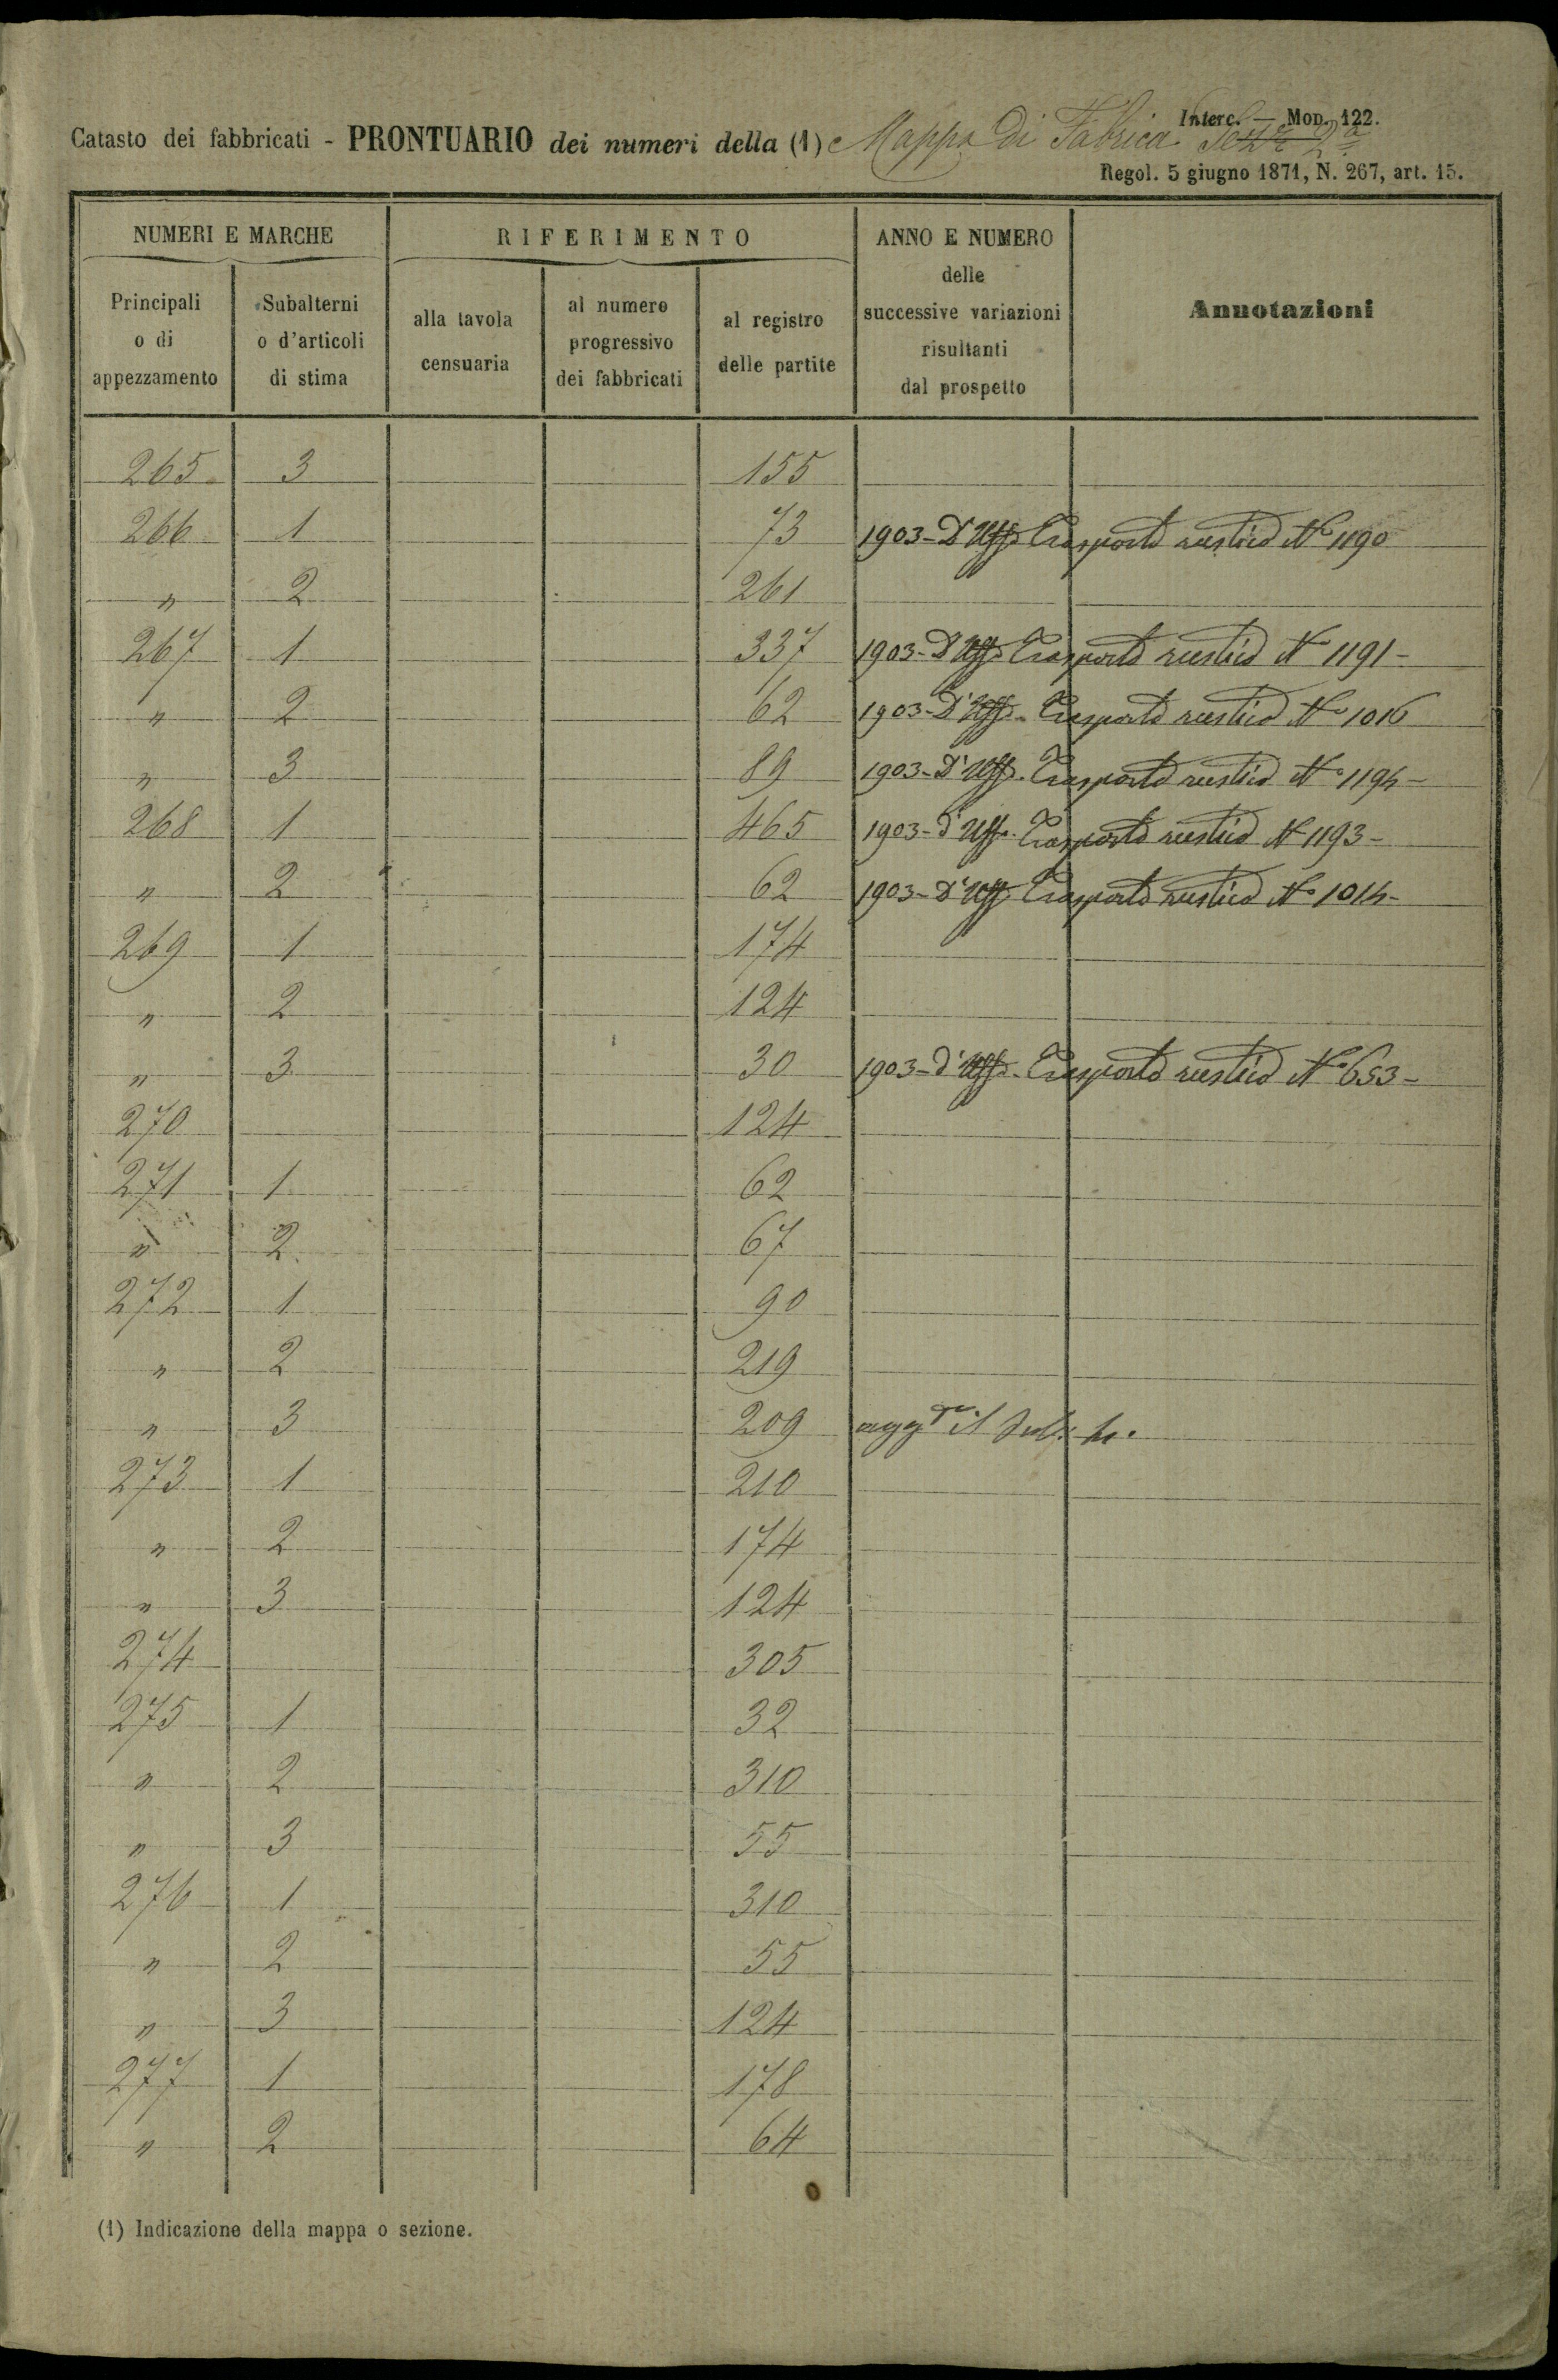 Interc. — Mod. 122.
Catasto dei fabbricati - PRONTUARIO dei numeri della (1) Mappa Di Fabrica Sez.e 2a
Regol. 5 giugno 1871, N. 267, art. 15.
NUMERI E MARCHE
RIFERIMENTO
ANNO E NUMERO delle successive variazioni risultanti dal prospetto
Annotazioni
Principali o di appezzamento
Subalterni o d'articoli di stima
alla tavola censuaria
al numero progressivo dei fabbricati
al registro delle partite
265 3 155
266 1 73 1903 - D'Uff. Trasporto rustico No 1190
" 2 261
267 1 337 1903 - D'Uff. Trasporto rustico No 1191 -
" 2 62 1903 - D'Uff. Trasporto rustico No 1016
" 3 89 1903 - D'Uff. Trasporto rustico No 1194 -
268 1 465 1903 - d'Uff. Trasporto rustico No 1193 -
" 2 62 1903 - D'Uff. Trasporto rustico No 1014 -
269 1 174
" 2 124
" 3 30 1903 - d'Uff. Trasporto rustico No 653 -
270 124
271 1 62
" 2 67
272 1 90
" 2 219
" 3 209 agg.to il sub. 4.
273 1 210
" 2 174
" 3 124
274 305
275 1 32
" 2 310
" 3 55
276 1 310
" 2 55
" 3 124
277 1 178
" 2 64
(1) Indicazione della mappa o sezione.